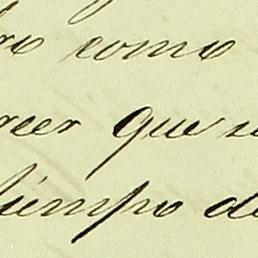 ro como
reer que
tiempo de